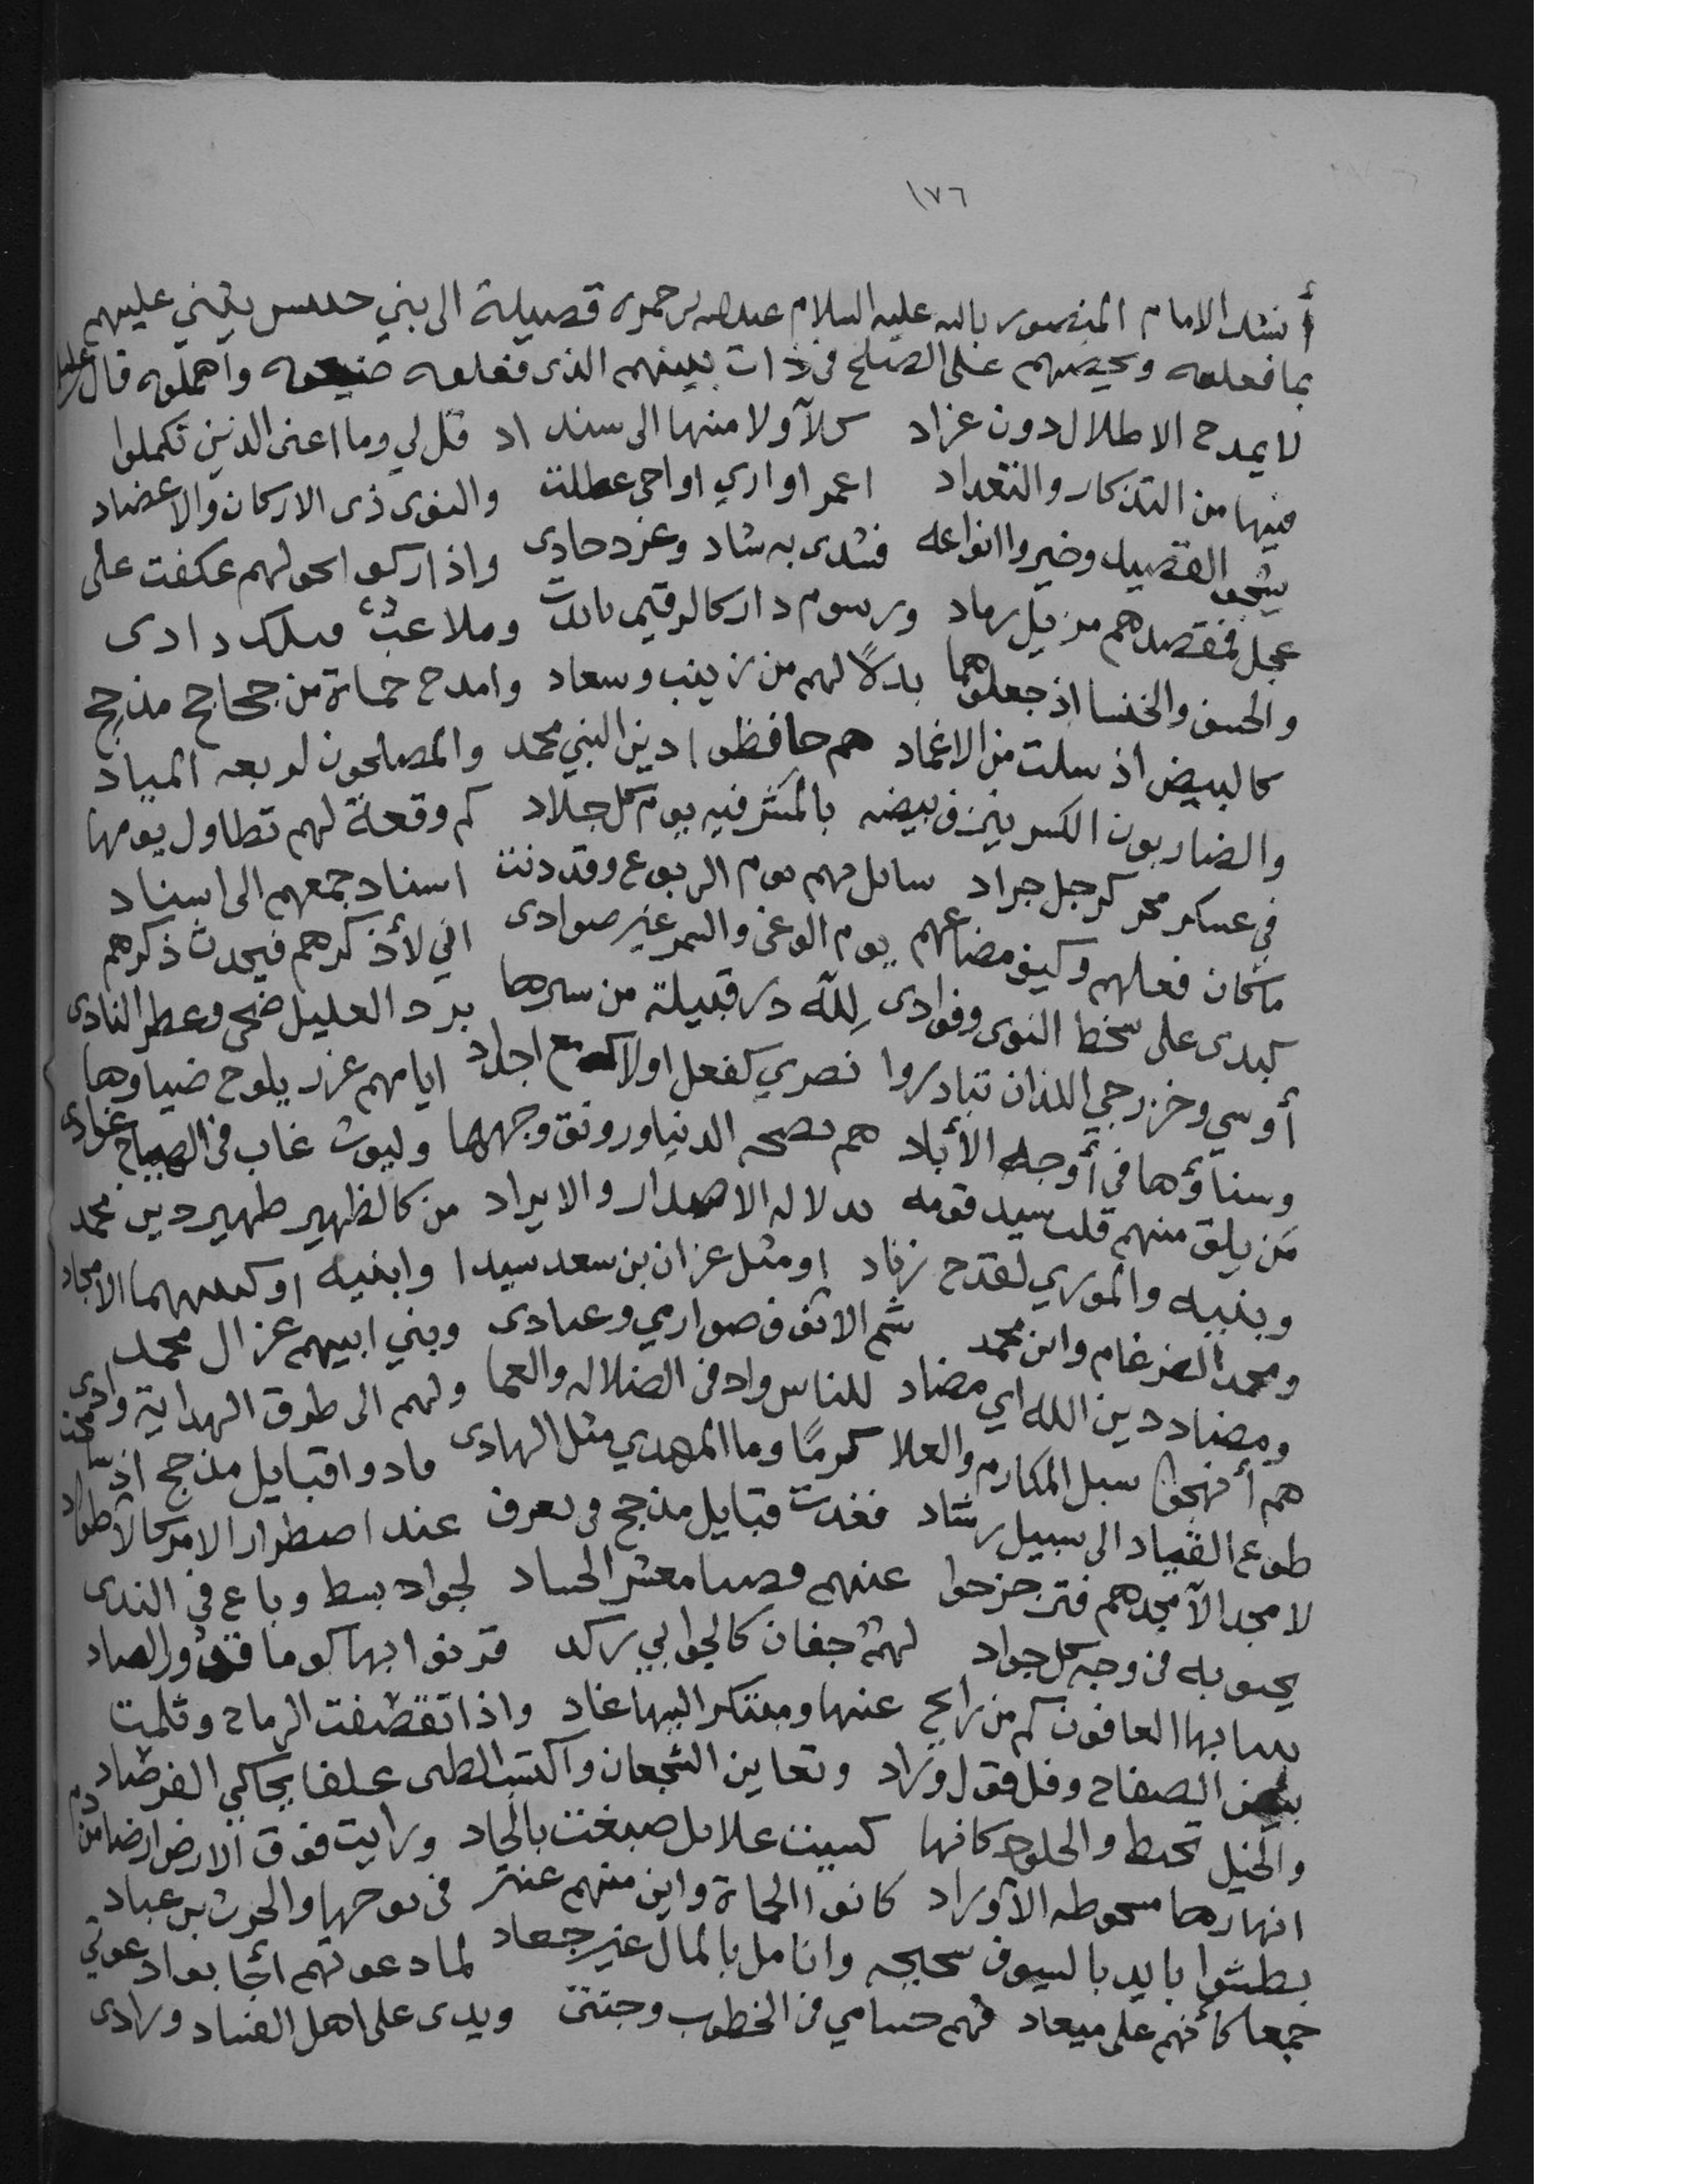 ١٧٦
أنشد الامام المنصور بالله عليه السلام عبدالله بن حمزه قصيدة الى بني يثني عليهم
بما فعلوه ويحضهم على الصلح في ذات بينهم الذى فعلوه ضيعوه واهملوه قال
لا يمدح الاطلال دون عزاد كلا ولا منها الى سنداد قل لي وما اعنى الذين تكملوا
فيها من التذكار والتعداد اعمر اواري اواحي عطلت والنوى ذى الاركان والاعضاد
القصيد وخيروا انواعه فشدى به شاد وغرد حادى واذا ركبوا لحولهم عكفت على
عجل فمقصدهم مزيل رماد ورسوم دار كالرقيم وملاعب دادى
والحسن والخنسا اذ جعلوهما بدلاً لهم من زينب وسعاد وامدح حماة من جحاجح مذحج
كالبيض اذ سلت من الاغماد هم حافظوا دين النبي محمد والمصلحون لربعه المياد
والضاربون الكبس في بيضه بالمشرفيه يوم كل جلاد كم وقعة لهم تطاول يومها
في عسكر مجر كرجل جراد سائل بهم يوم الربوع وقد دنت اسناد جمعهم الى اسناد
ما كان فعلهم وكيف مضاعهم يوم الوغى والسمر غير صوادى اني لأذكرهم فيحدث ذكرهم
كبدى على سخط النوى وفوادى لله در قبيلة من سرها برد العليل ضحى وعطر النادى
أوسي وخزرجي اللذان تبادروا نصري كفعل اولاك مع اجداد ايامهم غرر يلوح ضياوها
وسناؤها في أوجه الأبلاد هم الدنيا ورونق وجهها وليوث غاب في الصباح عوادى
من يلق منهم قلت سيد قومه الاصدار والايراد من كالظهير ظهير دين محمد
وبنيه والموري لقدح زناد او مثل عزان بن سعد سيدا وابنيه او الامجاد
ومحمد الضرغام وابن محمد شم الانف صوارمي وعتادى وبني ابيهم عزال محمد
ومضاد دين الله اي مضاد للناس واد في الضلاله والعما ولهم الى طرق الهداية وادى
هم أنهجوا سبل المكارم والعلا كرمًا وما المهدي مثل الهادى قادوا قبايل مذحج
طوع القياد الى سبيل رشاد فغدت قبايل مذحج في تعرف عند اضطرار الامر كالاطواد
لا مجد الا مجدهم فتزحزحوا عنهم معشر الحساد لجواد بسط وباع في الندى
يحبو به في وجه كل جواد لهم جفان كالجوابي ركد قرنوا بها كوما
بها العافون كم من رايح عنها ومبتكر اليها غاد واذا تقصفت الرماح وثلمت
بيض الصفاح وفل فول وراد وتعاين الشجعان واكتست الظبى علقا يحاكي الفرصاد
والخيل تحبط والجلود كانها كسيت علايل صبغت بالجاد ورايت فوق الارض ارضا من دم
انهارها الاوراد كانوا الحماة واين منهم عنتر في والحرث بن عباد
بطشوا بايد بالسيوف وانامل بالمال غير جعاد لما دعوتهم أجابوا دعوتي
جمعا كأنهم على ميعاد فهم حسامي في الخطوب وجنتى ويدى على اهل الفساد ورادى